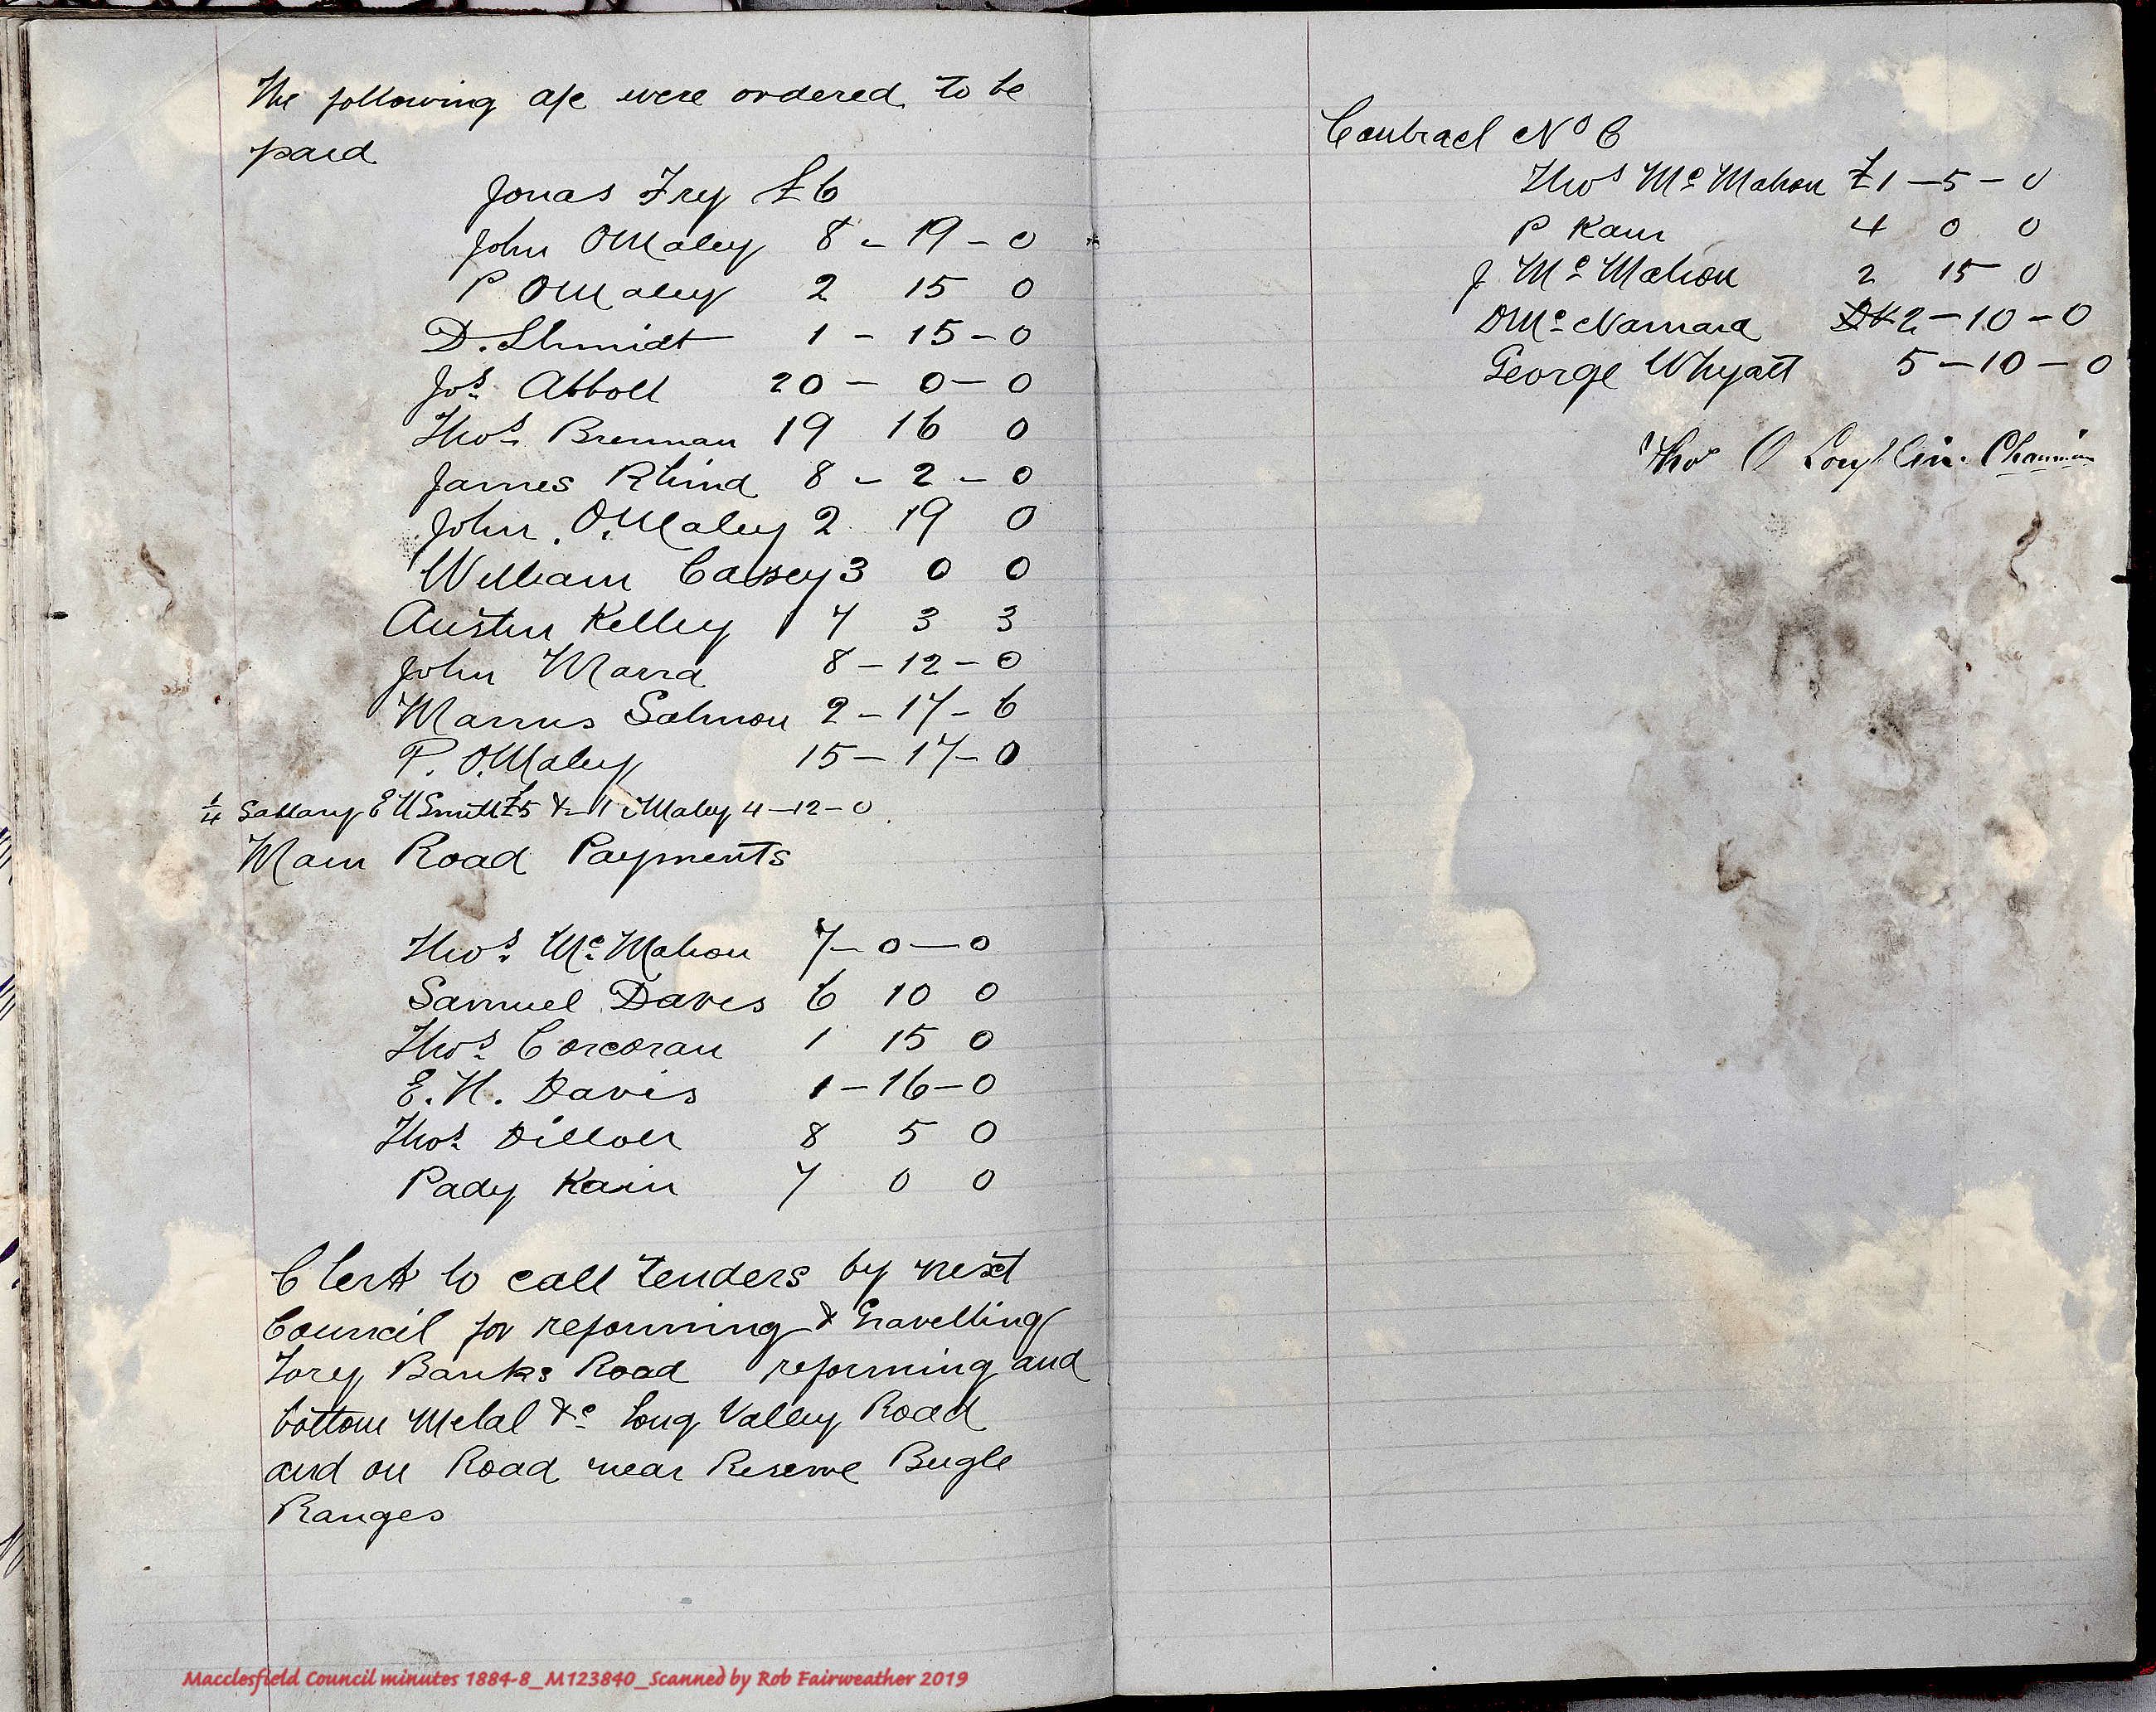 The following a/c were ordered to be
paid
Jonas Fry £6
John OMaley 8 - 19 - 0
P OMaley 2 15 0
D. Shmidt 1 - 15 - 0
Jos. Abbott 20 - 0 - 0
Thos. Brennan 19 16 0
James Rhind 8 - 2 - 0
John O.Maley 2 19 0
William Cassey 3 0 0
Austin Kelley 7 3 3
John Marra 8 - 12 - 0
Marrus Salmon 2 - 17 - 6
P. O.Maley 15 - 17 - 0
1/4 Sallary E H Smith £5 & Maley 4 - 12 - 0
Main Road Payments
Thos. Mc Mahon 7 - 0 - 0
Samuel Davis 6 10 0
Thos. Corcoran 1 15 0
E. H. Davis 1 - 16 - 0
Thos. Dillon 8 5 0
Pady Kain 7 0 0
Clerk to call tenders by next
Council for reforming & Gravelling
Banks Road reforming and
bottom Metal &c Long Valley Road
and on Road near Reserve Bugle
Ranges
Macclesfield Council minutes 1884-8_M123840_Scanned by Rob Fairweather 2019
Contract No 6
Thos Mc Mahon £1 - 5 - 0
P Kain 4 0 0
J Mc Mahon 2 15 0
D Mc Namara 2 - 10 - 0
George Whyatt 5 - 10 - 0
Thos O Loughlin. Chairman